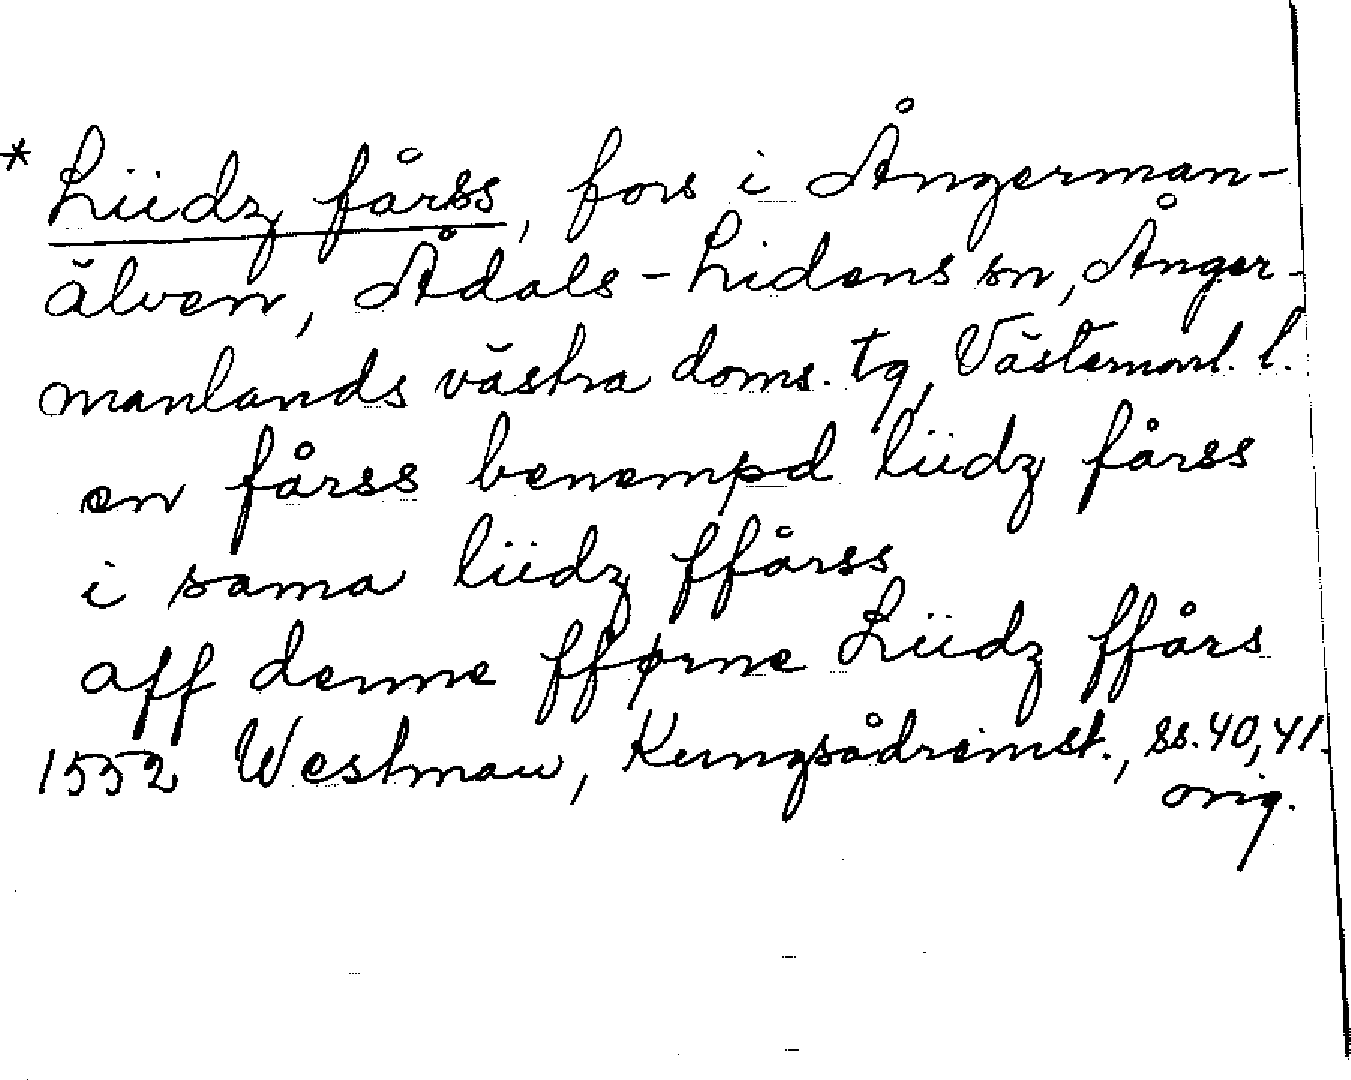 * Liidz fårss, fors i Ångerman-
älven, Ådals-Lidens sn, Ånger-
manlands västra doms. tg, Västernorrl. l.
en fårss benempd liidz fårss
i sama liidz ffårss
aff denne fførne Liidz ffårs
1552 Westman, Kungsådreinst., ss. 40, 41.
orig.